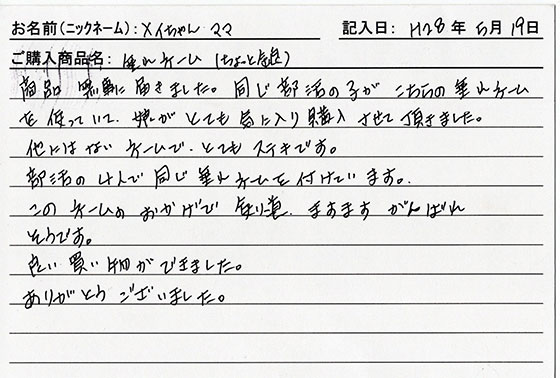 お名前(ニックネーム): メイちゃん ママ 記入日: H28 年 5月 19日
ご購入商品名: 垂れネーム (ちょっと
商品 無事に届きました。同じ部活の子が こちらの垂れネーム
を使っていて、娘が とても気に入り購入 させて頂きました。
他にはないネームで、とても ステキです。
部活の4人で同じ垂れネームを付けています。
このネームのおかげで ますます がんばれ
そうです。
良い買い物ができました。
ありがとう ございました。